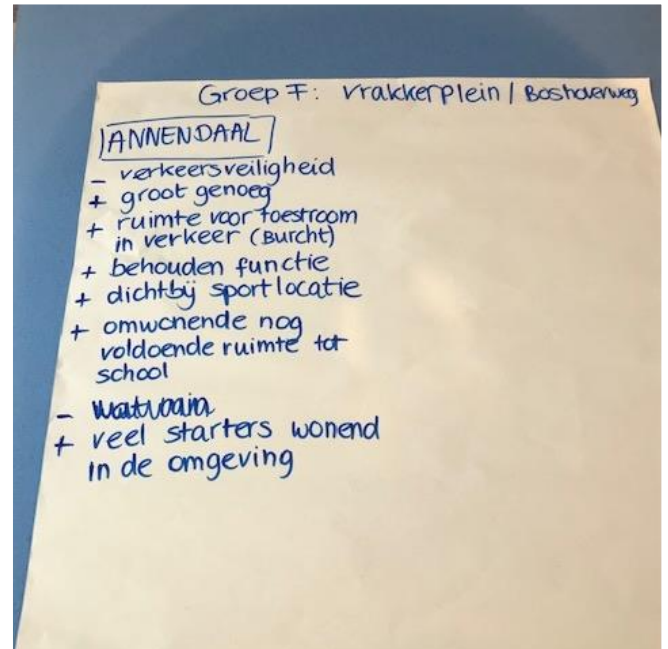 Groep F: Vrakkerplein / Boshoverweg
ANNENDAAL
- verkeersveiligheid
+ groot genoeg
+ ruimte voor toestroom
in verkeer (Burcht)
+ behouden functie
+ dichtbij sportlocatie
+ omwonende nog
voldoende ruimte tot
school
-
+ veel starters wonend
in de omgeving